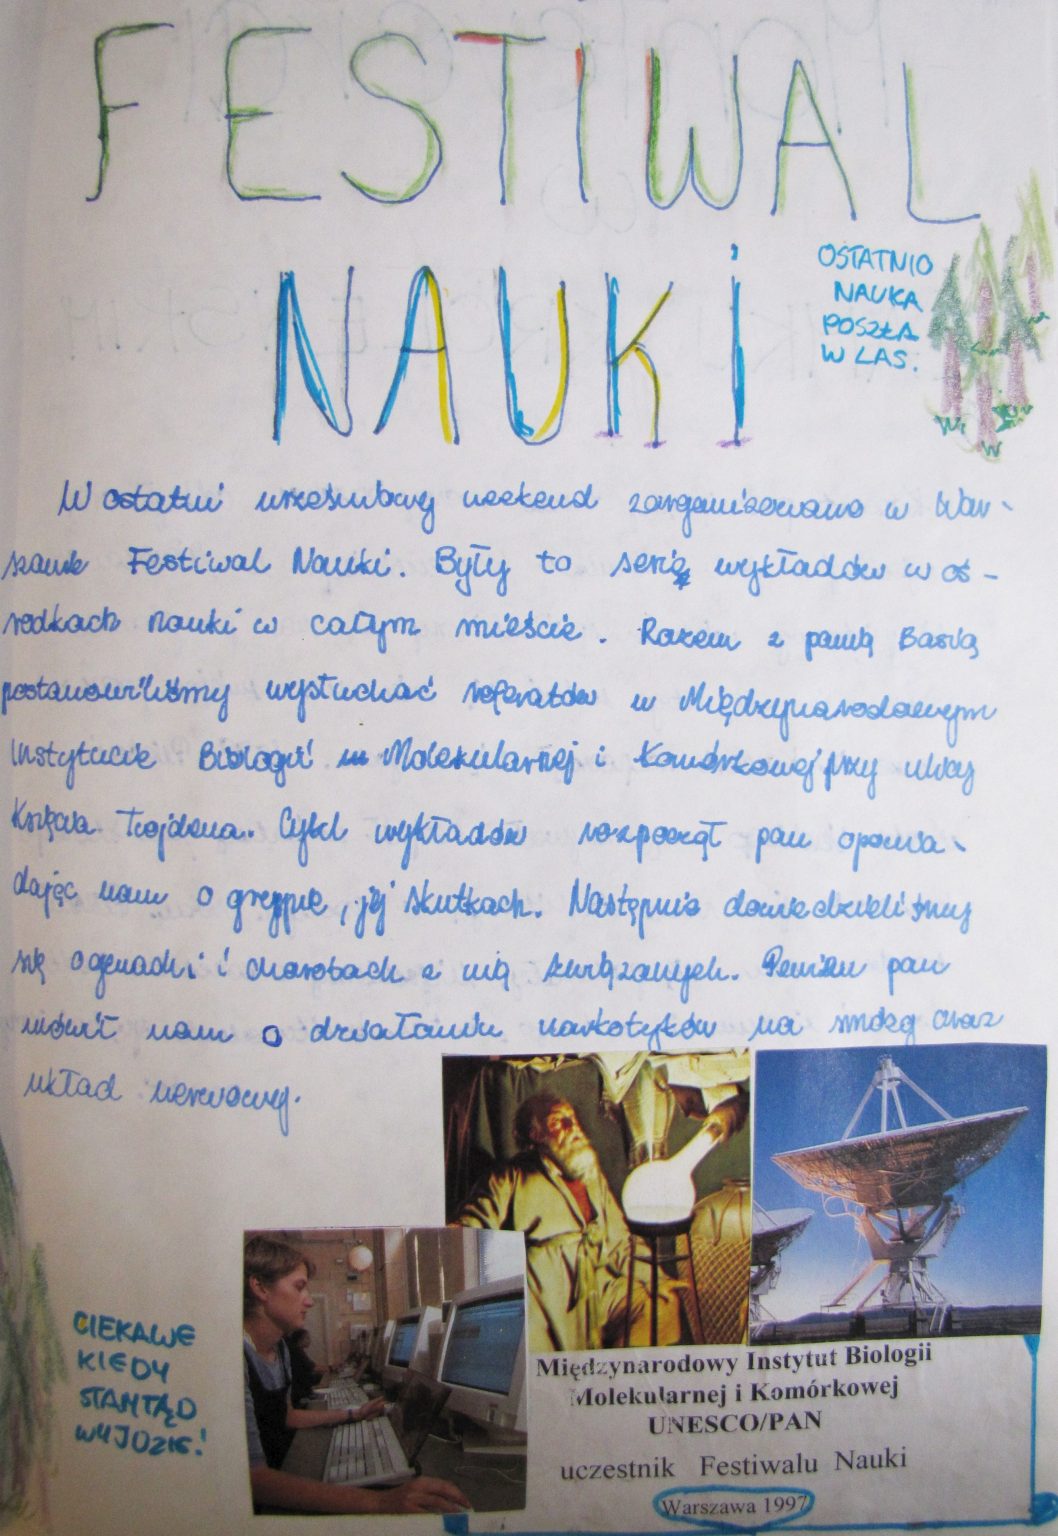 FESTIWAL
NAUKI
OSTATNIO
NAUKA
POSZŁA
W LAS.
W ostatni wrześniowy weekend zorganizowano w War-
szawie Festiwal Nauki. Były to serią wykładów w oś-
rodkach nauki w całym mieście. Razem z panią Basią
postanowiliśmy wysłuchać referatów w Międzynarodowym
Instytucie Biologii Molekularnej i Komórkowej przy ulicy
Księcia Trojdena. Cykl wykładów rozpoczął pan opowia-
dając nam o grypie, jej skutkach. Następnie dowiedzieliśmy
się o genach i chorobach z nią związanych. Pewien pan
mówił nam o działaniu narkotyków na mózg oraz
układ nerwowy.
CIEKAWE
KIEDY
STAMTĄD
WYJDZIE!
Międzynarodowy Instytut Biologii
Molekularnej i Komórkowej
UNESCO/PAN
uczestnik Festiwalu Nauki
Warszawa 1997